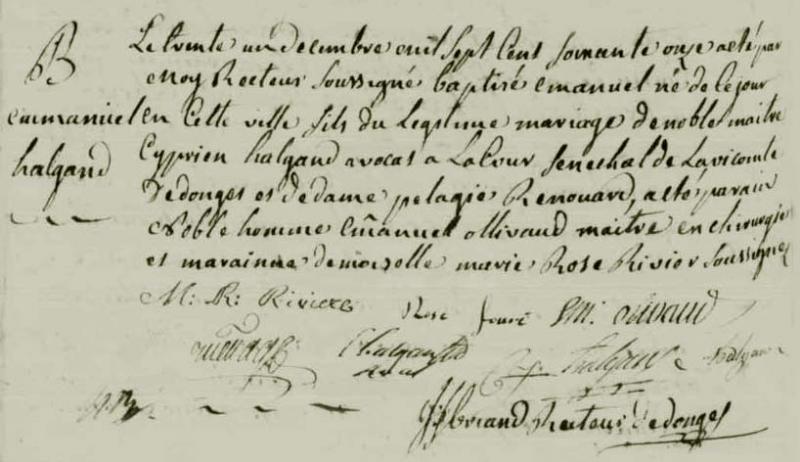 B
Emmanuel
halgand
Le trente un decembre mil Sept Cent soixante onze a eté par
Moy Recteur Soussigné baptisé Emanuel né de Ce jour
en Cette ville fils du Legitime mariage de noble maitre
Cyprien halgand avocat a La Cour Senechal de La vicomté
De donges et de dame pelagie Renouard, a eté parain
Noble homme Emanuel ollivaud maitre en chirurgie
et marainne demoiselle marie Rose Rivier Soussignés
M: R: Riviere Rose Em. olivaud
halgand
halgand
Recteur de donges